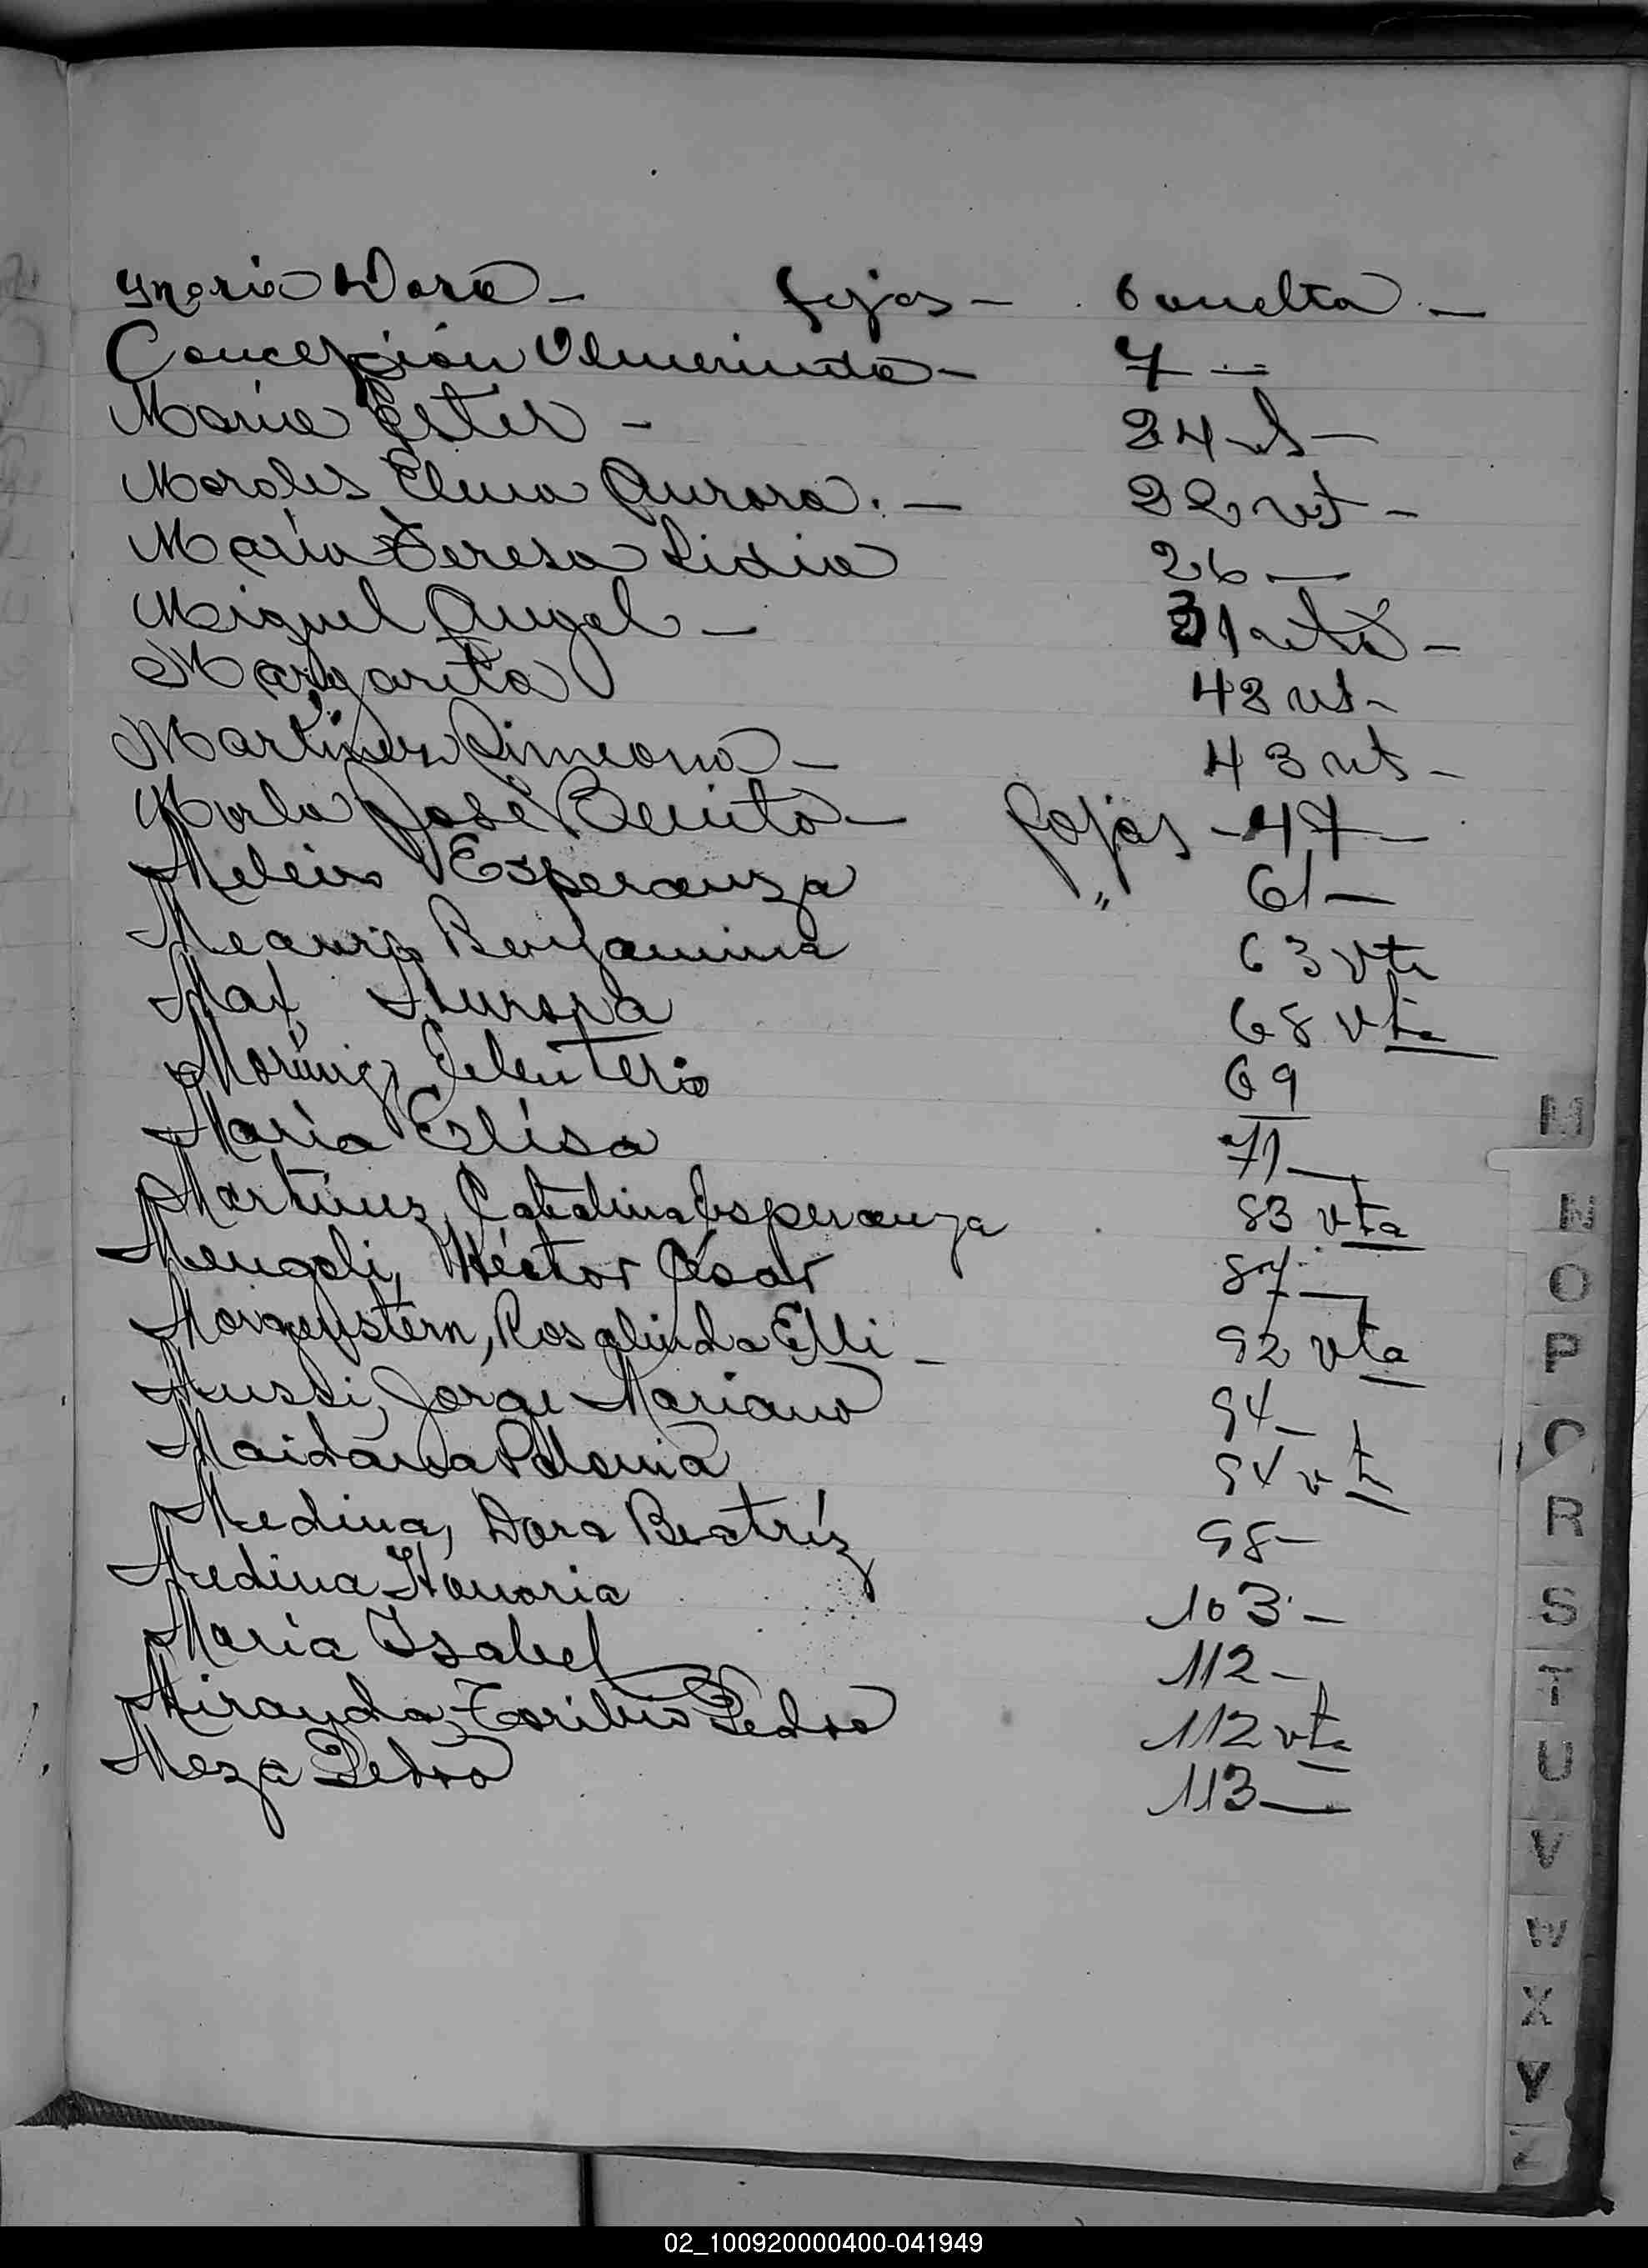 Maria Dora – fojas – 6 vuelta –
Concepción Olmerinda – 7 –
Maria Ester – 24 vt –
Morales Elena Aurora. – 22 vt –
María Teresa Lidia 26 –
Miguel Angel – 31 vta –
Margarita 42 vt –
Martinez Simeona – 43 vt –
José Benito – fojas – 47 –
Esperanza " 61 –
Benjamina 63 vta
Aurora 68 vta
Morinigo, Eleuterio 69
Maria Elisa 71 –
Martinez, Catalina Esperanza 83 vta
Mengoli, Héctor César 87 –
Morgenstern, Rosalinda Elli – 92 vta
Mussi, Jorge Mariano 94 –
Maidana Polonia 94 vta
Medina, Dora Beatríz 98 –
Medina Honoria 103 –
Maria Isabel 112 –
Miranda, Toribio Pedro 112 vta
Meza Pedro 113 –
M
N
O
P
Q
R
S
T
U
V
W
X
Y
02_100920000400-041949